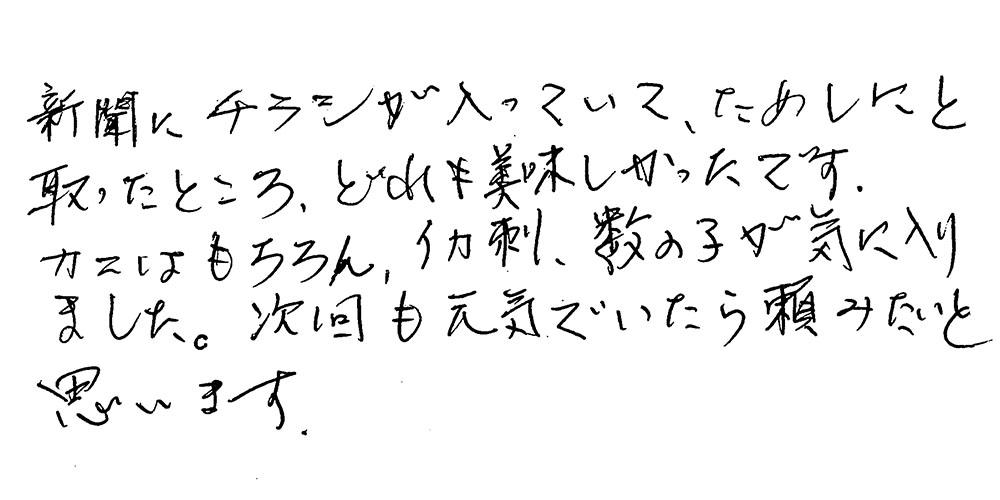 新聞にチラシが入っていて、ためしにと
取ったところ、どれも美味しかったです.
カニはもちろん, イカ刺、数の子が気に入り
ました。次回も元気でいたら頼みたいと
思います.